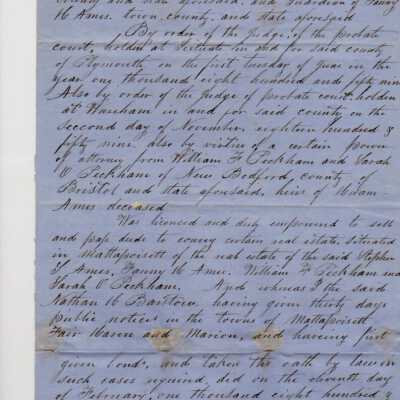 county and state aforesaid, and Guardian of Fanny
H Ames. town, county, and state aforesaid
By order of the Judge, of the probate
court, holden at Scituate in and for said county
of Plymouth, on the first tuesday of June in the
year one thousand eight hundred and fifty nine
Also by order of the Judge of probate court, holden
at Wareham in and for said county on the
Second day of November, eighteen hundred &
fifty nine, also by virtue of a certain power
of attorney from William F Peckham and Sarah
O Peckham of New Bedford, county of
Bristol and state aforesaid, heirs of Hiram
Ames deceased
Was licenced and duly empowered to sell
and pass deeds to convey certain real estate, situated
in Mattapoisett of the real estate of the said Stephen
Ames, Fanny H Ames. William F Peckham and
Sarah O Peckham. And whereas I the said
Nathan H Barstow having given thirty days
public notice in the towns of Mattapoisett
Fair Haven and Marion, and haveing first
given bond, and taken the oath by law in
such cases required, did on the eleventh day
of February, one thousand eight hundred &